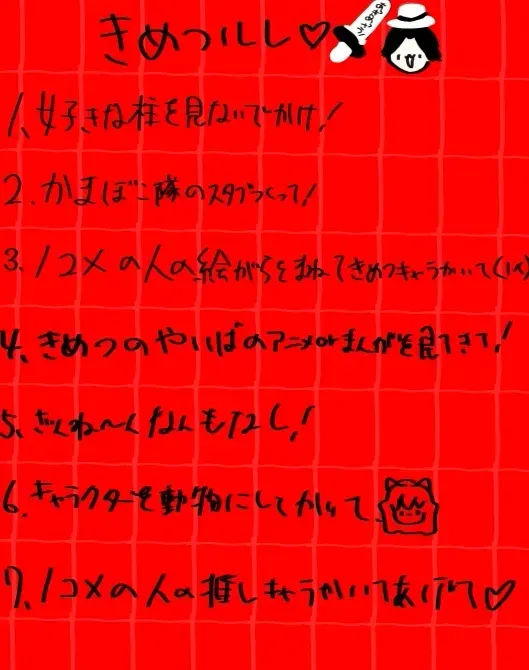 きめつルレ♡
1、好きな柱を見ないでかけ!
2.かまぼこ隊のスタプらくって!
3、1コメの人の絵がらをまねてきめつキャラかいて(1人)
4、きめつのやいばのアニメorまんがを見てきて!
5、ざんね〜んなんもなし!
6.キャラクターを動物にしてかいて
7、1コメの人の推しキャラかいてあげて♡